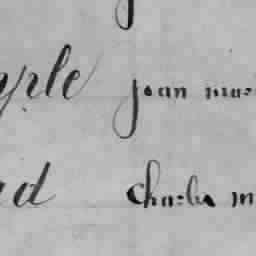 yple joan mar
d Charles m